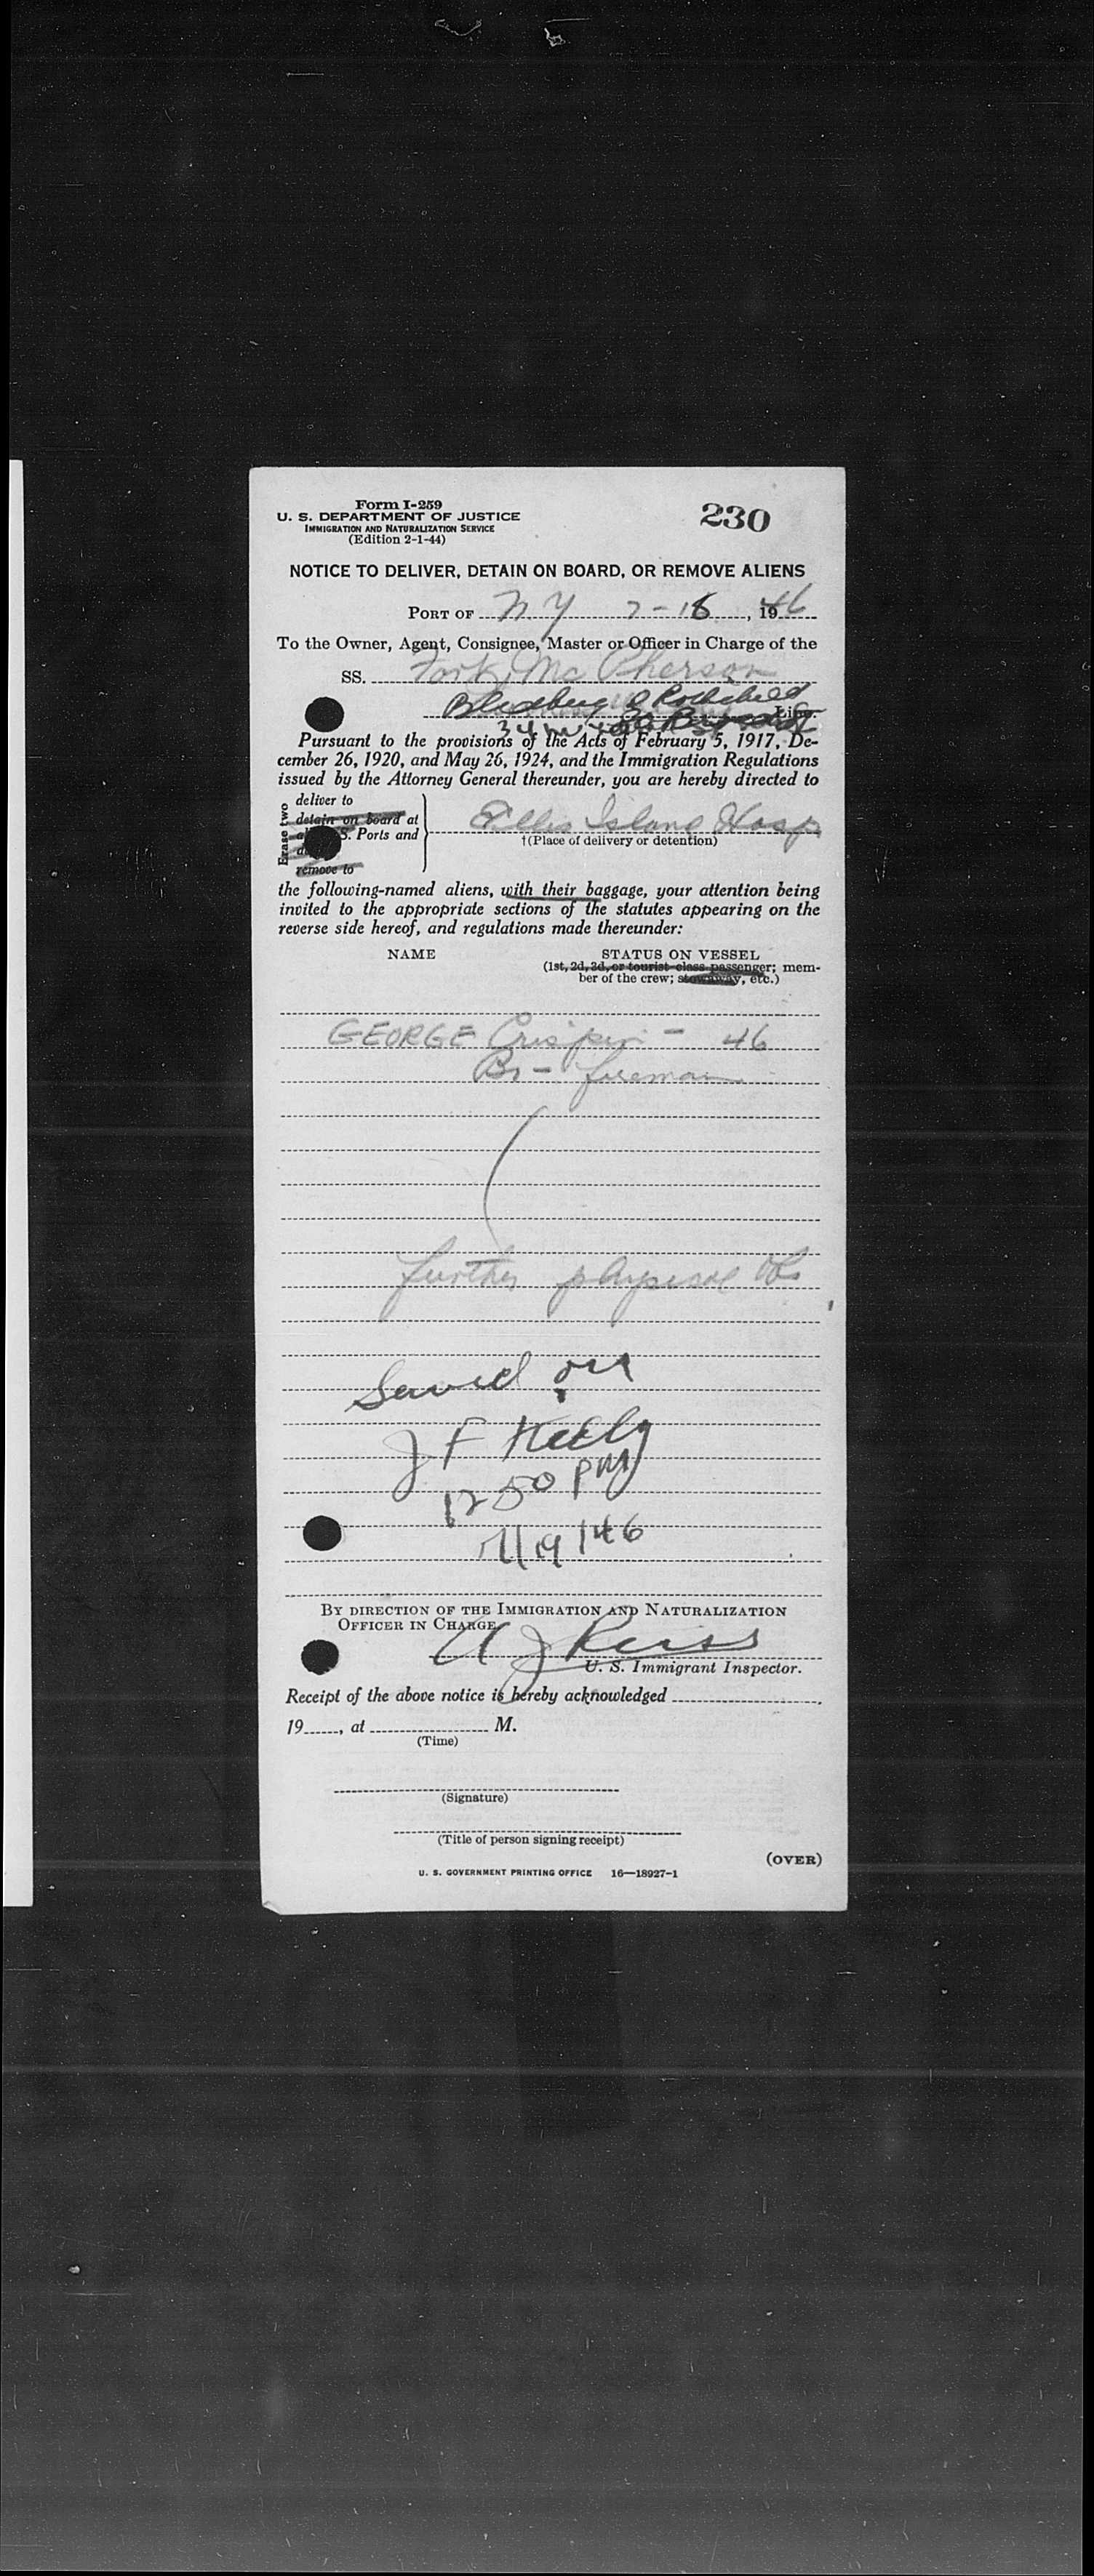 Form I-259
U. S. DEPARTMENT OF JUSTICE
IMMIGRATION AND NATURALIZATION SERVICE
(Edition 2-1-44)
230
NOTICE TO DELIVER, DETAIN ON BOARD, OR REMOVE ALIENS
PORT OF N.Y 7-18, 1946
To the Owner, Agent, Consignee, Master or Officer in Charge of the
SS. Fort McPherson
Rothchild Line.
Pursuant to the provisions of the Acts of February 5, 1917, De-
cember 26, 1920, and May 26, 1924, and the Immigration Regulations
issued by the Attorney General thereunder, you are hereby directed to
Erase two
deliver to
detain on board at
S. Ports and
remove to
Ellis Island Hosp
†(Place of delivery or detention)
the following-named aliens, with their baggage, your attention being
invited to the appropriate sections of the statutes appearing on the
reverse side hereof, and regulations made thereunder:
NAME
STATUS ON VESSEL
(1st, 2d, 3d, or tourist-class passenger; mem-
ber of the crew; stowaway, etc.)
GEORGE Crispin - 46
Br - fireman
further physical
Served on
J F
12 50 PM
7/19/46
BY DIRECTION OF THE IMMIGRATION AND NATURALIZATION
OFFICER IN CHARGE
A J Reiss
U. S. Immigrant Inspector.
Receipt of the above notice is hereby acknowledged
19, at M.
(Time)
(Signature)
(Title of person signing receipt)
(OVER)
U. S. GOVERNMENT PRINTING OFFICE 16—18927-1